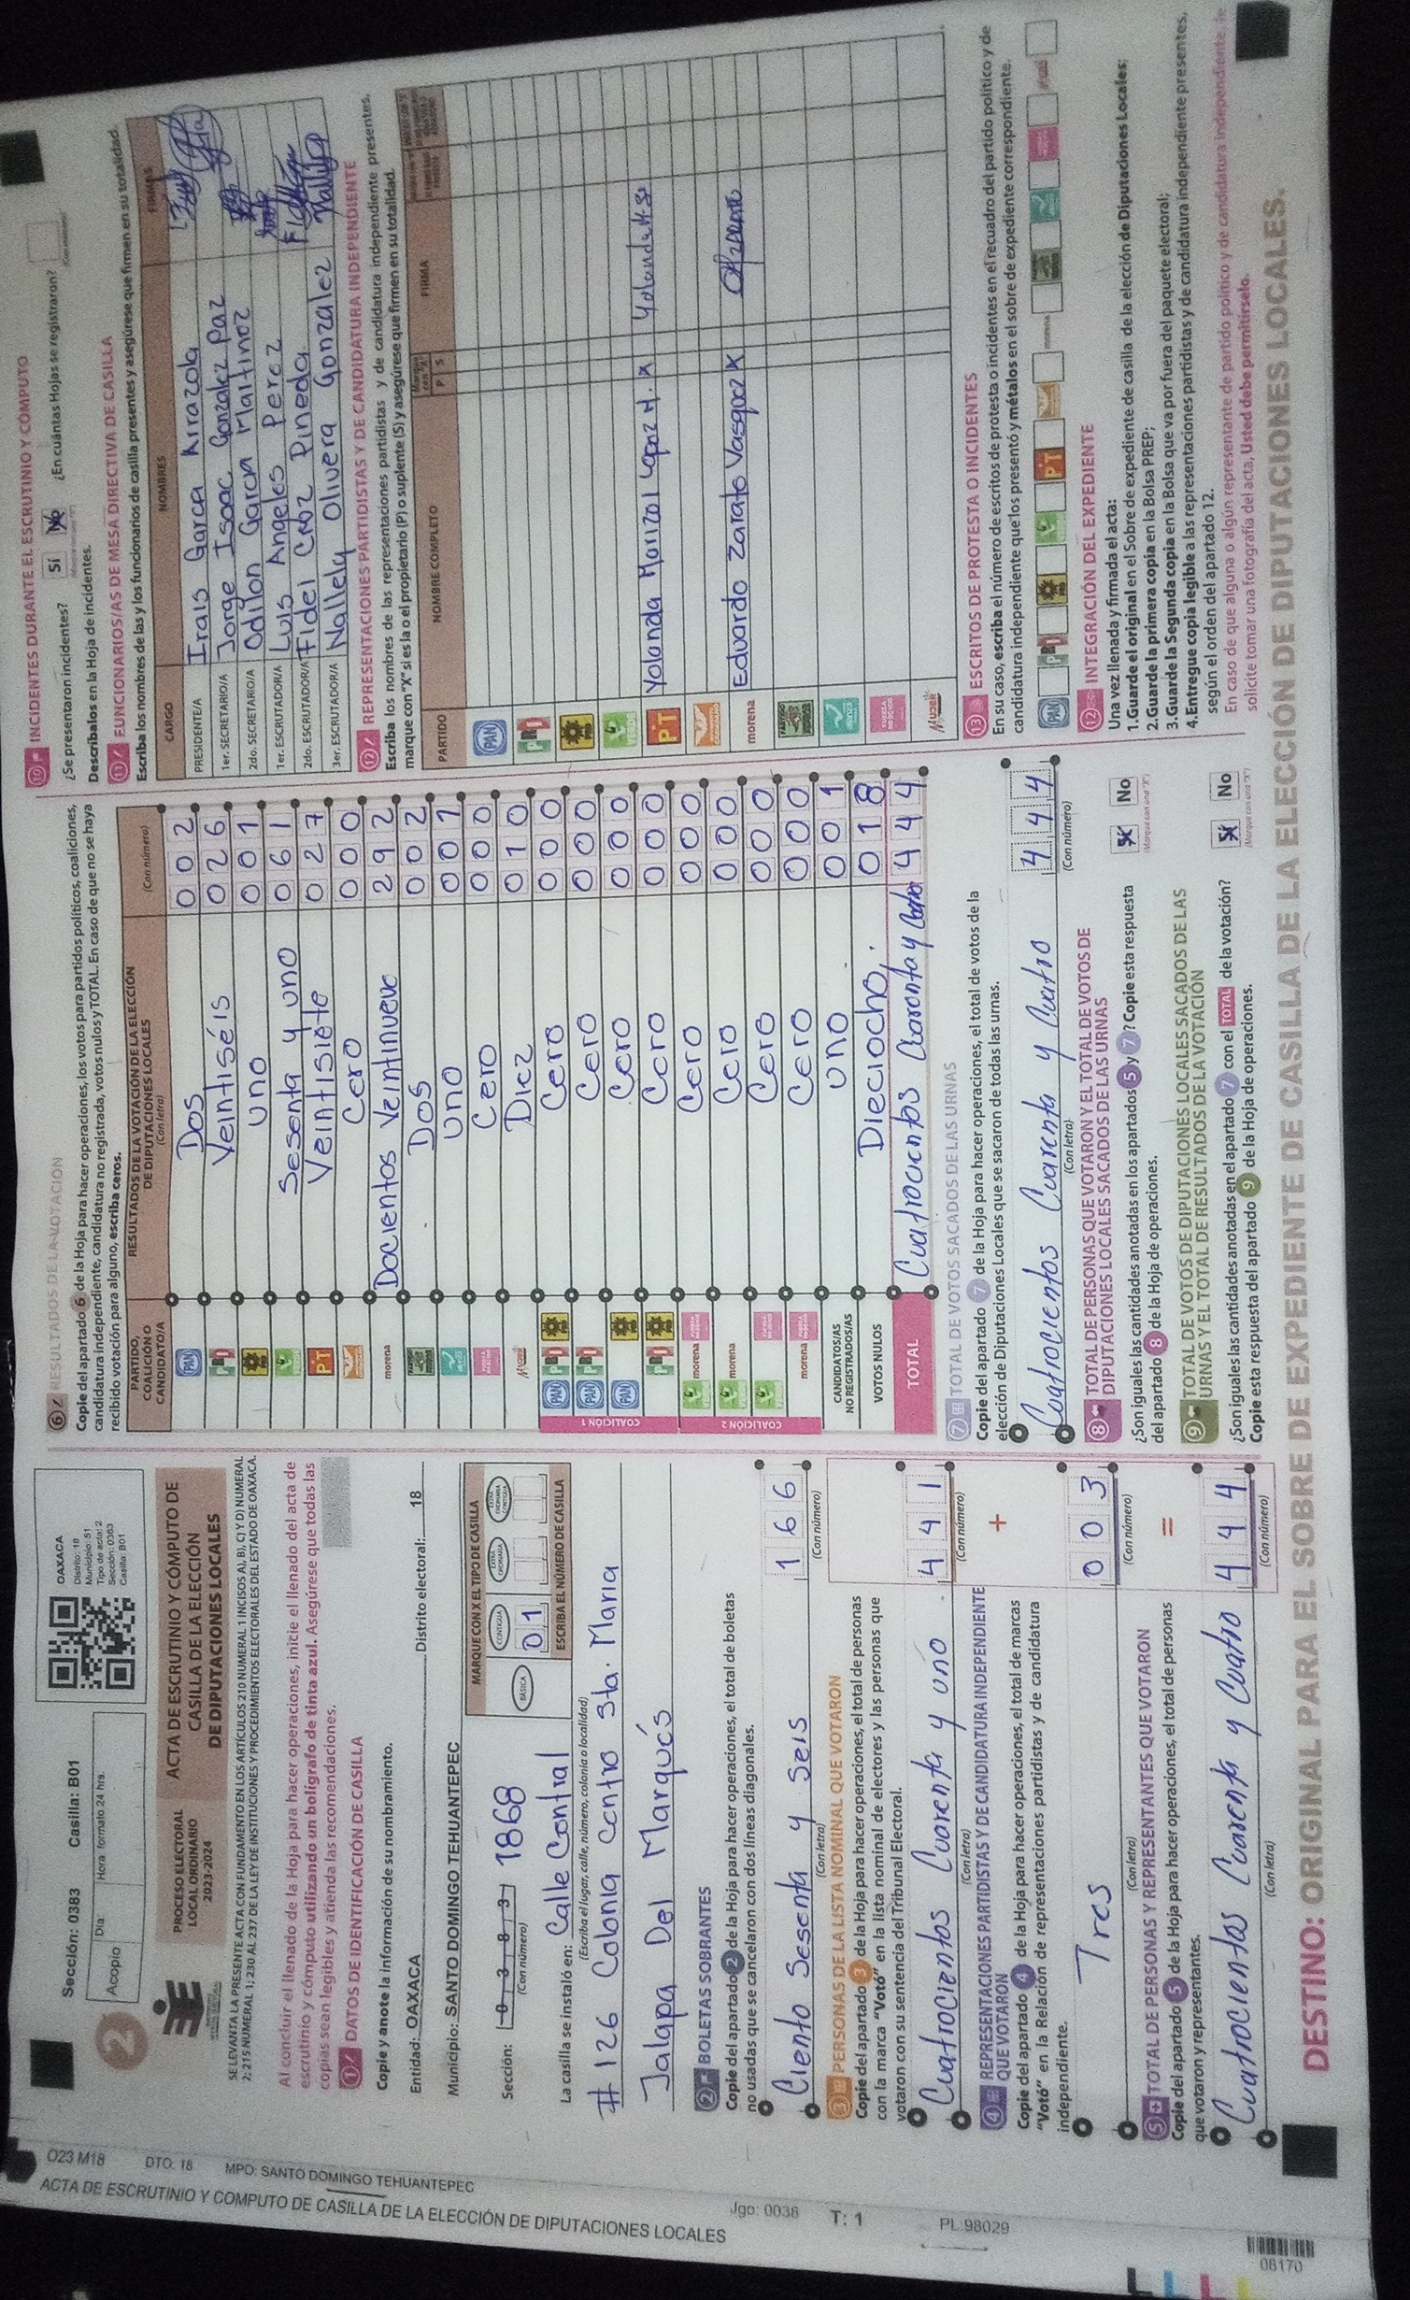 023 M18
DTO. 18
MPO: SANTO DOMINGO TEHUANTEPEC
ACTA DE ESCRUTINIO Y COMPUTO DE CASILLA DE LA ELECCIÓN DE DIPUTACIONES LOCALES
Jgo: 0038
T: 1
PL 98029
08170
Sección: 0383 Casilla: B01
2
Acopio
Día:
Hora formato 24 hrs.
OAXACA
Distrito: 18
Municipio: 51
Tipo de acta: 2
Sección: 0383
Casilla: B01
PROCESO ELECTORAL
LOCAL ORDINARIO
2023-2024
ACTA DE ESCRUTINIO Y CÓMPUTO DE
CASILLA DE LA ELECCIÓN
DE DIPUTACIONES LOCALES
SE LEVANTA LA PRESENTE ACTA CON FUNDAMENTO EN LOS ARTÍCULOS 210 NUMERAL 1 INCISOS A), B), C) Y D) NUMERAL
2; 215 NUMERAL 1; 230 AL 237 DE LA LEY DE INSTITUCIONES Y PROCEDIMIENTOS ELECTORALES DEL ESTADO DE OAXACA.
Al concluir el llenado de la Hoja para hacer operaciones, inicie el llenado del acta de
escrutinio y cómputo utilizando un bolígrafo de tinta azul. Asegúrese que todas las
copias sean legibles y atienda las recomendaciones.
1 DATOS DE IDENTIFICACIÓN DE CASILLA
Copie y anote la información de su nombramiento.
Entidad: OAXACA Distrito electoral: 18
Municipio: SANTO DOMINGO TEHUANTEPEC
Sección: 0 3 8 3 1868
(Con número)
MARQUE CON X EL TIPO DE CASILLA
BÁSICA
CONTIGUA
01
ESCRIBA EL NÚMERO DE CASILLA
La casilla se instaló en: Calle Central
(Escriba el lugar, calle, número, colonia o localidad)
# 126 Colonia Centro Sta. Maria
Jalapa Del Marqués
2 BOLETAS SOBRANTES
Copie del apartado 2 de la Hoja para hacer operaciones, el total de boletas
no usadas que se cancelaron con dos líneas diagonales.
Ciento Sesenta y Seis 166
(Con letra) (Con número)
3 PERSONAS DE LA LISTA NOMINAL QUE VOTARON
Copie del apartado 3 de la Hoja para hacer operaciones, el total de personas
con la marca "Votó" en la lista nominal de electores y las personas que
votaron con su sentencia del Tribunal Electoral.
Cuatrocientos Cuarenta y uno 441
(Con letra) (Con número)
4 REPRESENTACIONES PARTIDISTAS Y DE CANDIDATURA INDEPENDIENTE
QUE VOTARON
+
Copie del apartado 4 de la Hoja para hacer operaciones, el total de marcas
"Votó" en la Relación de representaciones partidistas y de candidatura
independiente.
Tres 003
(Con letra) (Con número)
5 TOTAL DE PERSONAS Y REPRESENTANTES QUE VOTARON
=
Copie del apartado 5 de la Hoja para hacer operaciones, el total de personas
que votaron y representantes.
Cuatrocientos Cuarenta y Cuatro 444
(Con letra) (Con número)
6 RESULTADOS DE LA VOTACIÓN
Copie del apartado 6 de la Hoja para hacer operaciones, los votos para partidos políticos, coaliciones,
candidatura independiente, candidatura no registrada, votos nulos y TOTAL. En caso de que no se haya
recibido votación para alguno, escriba ceros.
PARTIDO, COALICIÓN O CANDIDATO/A
RESULTADOS DE LA VOTACIÓN DE LA ELECCIÓN
DE DIPUTACIONES LOCALES
(Con letra) (Con número)
PAN Dos 002
PRI Veintiséis 026
PRD uno 001
Sesenta y uno 061
PT Veintisiete 027
Cero 000
morena Docientos Veintinueve 292
Dos 002
uno 001
Cero 000
Mujer Diez 010
COALICIÓN 1
PAN PRI PRD Cero 000
PAN PRI Cero 000
PAN PRD Cero 000
PRI PRD Cero 000
COALICIÓN 2
morena Cero 000
morena Cero 000
Cero 000
morena Cero 000
CANDIDATOS/AS
NO REGISTRADOS/AS uno 001
VOTOS NULOS Dieciocho, 018
TOTAL Cuatrocientos Cuarenta y Cuatro 444
7 TOTAL DE VOTOS SACADOS DE LAS URNAS
Copie del apartado 7 de la Hoja para hacer operaciones, el total de votos de la
elección de Diputaciones Locales que se sacaron de todas las urnas.
Cuatrocientos Cuarenta y Cuatro 444
(Con letra) (Con número)
8 TOTAL DE PERSONAS QUE VOTARON Y EL TOTAL DE VOTOS DE
DIPUTACIONES LOCALES SACADOS DE LAS URNAS
¿Son iguales las cantidades anotadas en los apartados 5 y 7? Copie esta respuesta
del apartado 8 de la Hoja de operaciones.
Sí No
(Marque con una "X")
9 TOTAL DE VOTOS DE DIPUTACIONES LOCALES SACADOS DE LAS
URNAS Y EL TOTAL DE RESULTADOS DE LA VOTACIÓN
¿Son iguales las cantidades anotadas en el apartado 7 con el TOTAL de la votación?
Copie esta respuesta del apartado 9 de la Hoja de operaciones.
Sí No
(Marque con una "X")
10 INCIDENTES DURANTE EL ESCRUTINIO Y CÓMPUTO
¿Se presentaron incidentes? Sí No ¿En cuántas Hojas se registraron?
Descríbalos en la Hoja de incidentes.
11 FUNCIONARIOS/AS DE MESA DIRECTIVA DE CASILLA
Escriba los nombres de las y los funcionarios de casilla presentes y asegúrese que firmen en su totalidad.
CARGO NOMBRES FIRMAS
PRESIDENTE/A Irais Garcia Arrazola
1er. SECRETARIO/A Jorge Isaac Gonzalez Paz
2do. SECRETARIO/A Odilon Garcia Martinez
1er. ESCRUTADOR/A Luis Angeles Perez
2do. ESCRUTADOR/A Fidel Cruz Pineda
3er. ESCRUTADOR/A Nallely Olivera Gonzalez
12 REPRESENTACIONES PARTIDISTAS Y DE CANDIDATURA INDEPENDIENTE
Escriba los nombres de las representaciones partidistas y de candidatura independiente presentes,
marque con "X" si es la o el propietario (P) o suplente (S) y asegúrese que firmen en su totalidad.
PARTIDO NOMBRE COMPLETO P S FIRMA
PAN
PRI
PRD
PT Yolanda Marizol Lopez H. X
morena Eduardo Zarate Vasquez X
Mujer
13 ESCRITOS DE PROTESTA O INCIDENTES
En su caso, escriba el número de escritos de protesta o incidentes en el recuadro del partido político y de
candidatura independiente que los presentó y métalos en el sobre de expediente correspondiente.
PAN PRI PRD PT morena
INTEGRACIÓN DEL EXPEDIENTE
Una vez llenada y firmada el acta:
1.Guarde el original en el Sobre de expediente de casilla de la elección de Diputaciones Locales;
2.Guarde la primera copia en la Bolsa PREP;
3.Guarde la Segunda copia en la Bolsa que va por fuera del paquete electoral;
4.Entregue copia legible a las representaciones partidistas y de candidatura independiente presentes,
según el orden del apartado 12.
En caso de que alguna o algún representante de partido político y de candidatura independiente, le
solicite tomar una fotografía del acta, Usted debe permitírselo.
DESTINO: ORIGINAL PARA EL SOBRE DE EXPEDIENTE DE CASILLA DE LA ELECCIÓN DE DIPUTACIONES LOCALES.